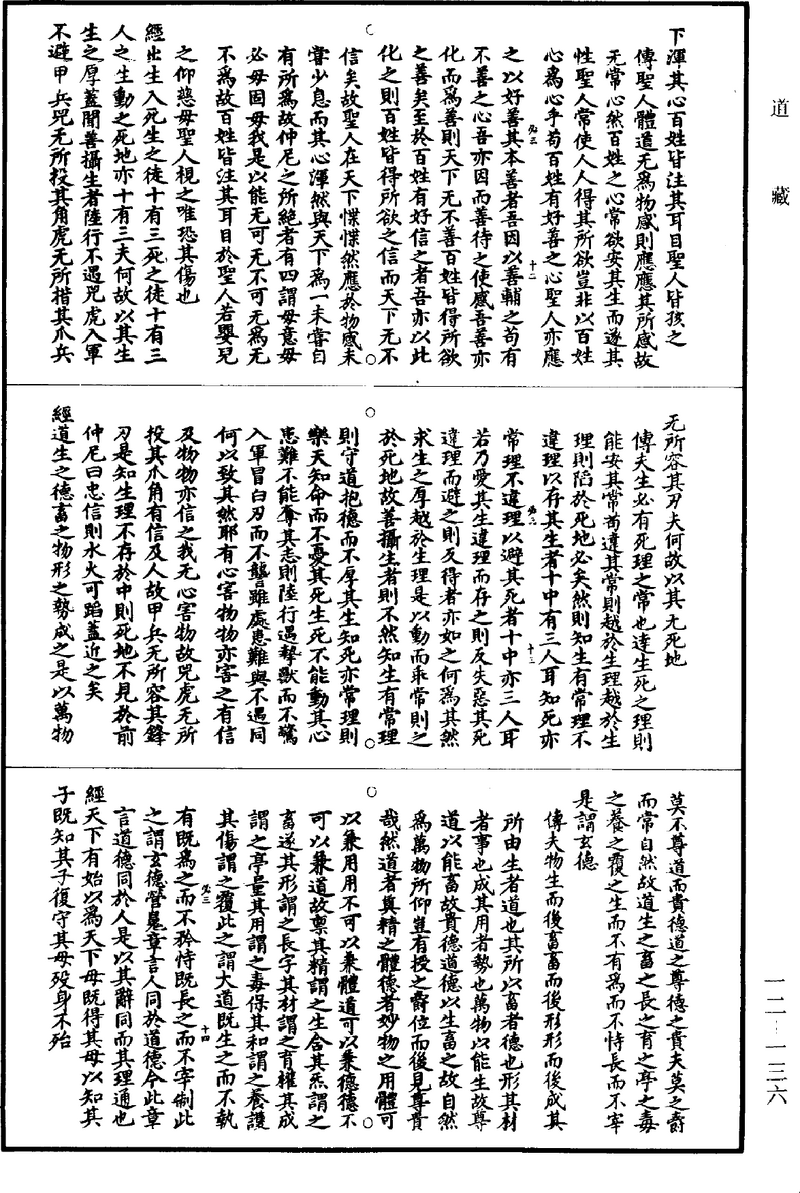 道藏
下渾其心百姓皆注其耳目聖人皆孩之
傳聖人體道无爲物感則應應其所感故
无常心然百姓之心常欲安其生而遂其
性聖人常使人人得其所欲豈非以百姓
心爲心乎苟百姓有好善之心聖人亦應
之以好善其本善者吾因以善輔之苟有
不善之心吾亦因而善待之使感吾善亦
化而爲善則天下无不善百姓皆得所欲
之善矣至於百姓有好信之者吾亦以此
化之則百姓皆得所欲之信而天下无不
信矣故聖人在天下惵惵然應於物感未
嘗少息而其心渾然與天下爲一未嘗自
有所爲故仲尼之所絕者有四謂毋意毋
必毋固毋我是以能无可无不可无爲无
不爲故百姓皆注其耳目於聖人若嬰兒
之仰慈母聖人視之唯恐其傷也
經出生入死生之徒十有三死之徒十有三
人之生動之死地亦十有三夫何故以其生
生之厚蓋聞善攝生者陸行不遇兕虎入軍
不避甲兵兕无所投其角虎无所措其爪兵
无所容其刃夫何故以其无死地
傳夫生必有死理之常也達生死之理則
能安其常苟違其常則越於生理越於生
理則陷於死地必矣然則知生有常理不
違理以存其生者十中有三人耳知死亦
常理不違理以避其死者十中亦三人耳
若乃愛其生違理而存之則反失惡其死
違理而避之則反得者亦如之何爲其然
求生之厚越於生理是以動而乖常則之
於死地故善攝生者則不然知生有常理
則守道抱德而不厚其生知死亦常理則
樂天知命而不憂其死生死不能動其心
患難不能奪其志則陸行遇摯獸而不驚
入軍冒白刃而不讋雖處患難與不遇同
何以致其然耶有心害物物亦害之有信
及物物亦信之我无心害物故兕虎无所
投其爪角有信及人故甲兵无所容其鋒
刃是知生理不存於中則死地不見於前
仲尼曰忠信則水火可蹈蓋近之矣
經道生之德畜之物形之勢成之是以萬物
莫不尊道而貴德道之尊德之貴夫莫之爵
而常自然故道生之畜之長之育之亭之毒
之養之覆之生而不有爲而不恃長而不宰
是謂玄德
傳夫物生而後畜畜而後形形而後成其
所由生者道也其所以畜者德也形其材
者事也成其用者勢也萬物以能生故尊
道以能畜故貴德道德以生畜之故自然
爲萬物所仰豈有授之爵位而後見尊貴
哉然道者眞精之體德者妙物之用體可
以兼用用不可以兼體道可以兼德德不
可以兼道故禀其精謂之生含其炁謂之
畜遂其形謂之長字其材謂之育權其成
謂之亭量其用謂之毒保其和謂之養護
其傷謂之覆此之謂大道既生之而不執
有既爲之而不矜恃既長之而不宰制此
之謂玄德營魄章言人同於道德今此章
言道德同於人是以其辭同而其理通也
經天下有始以爲天下母既得其母以知其
子既知其子復守其母歿身不殆
必三
十二
必三
十三
必三
十四
一二-一三六